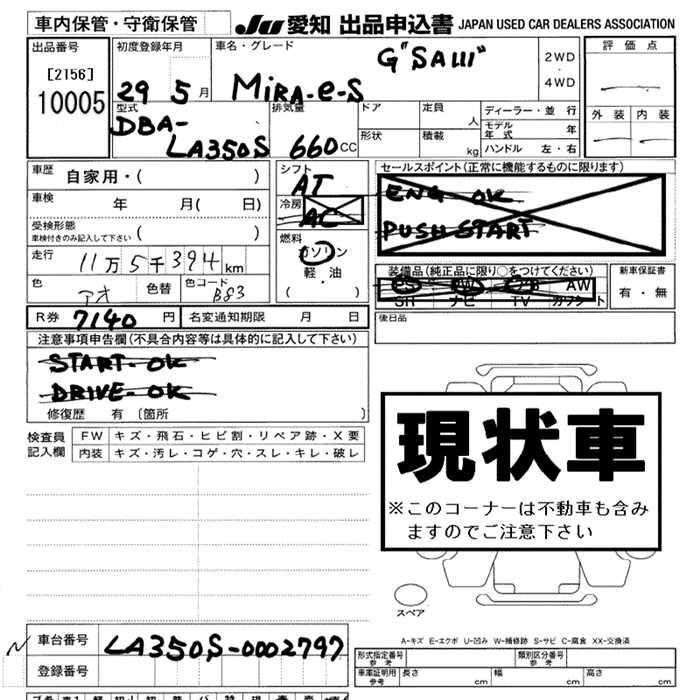 車内保管・守衛保管
JU 愛知 出品申込書 JAPAN USED CAR DEALERS ASSOCIATION
出品番号
[2156]
10005
初度登録年月
29 5 月
車名・グレード
G"SAIII"
MiRA-e-S
2WD
・
4WD
評価点
外装 内装
型式
DBA-
LA350S
排気量
660 CC
ドア
形状
定員
人
積載
kg
ディーラー・並行
モデル年式 年
ハンドル 左・右
車歴 自家用・( )
車検 年 月( 日)
受検形態
車検付きのみ記入して下さい ( )
走行 11万5千394 km
色 アオ 色替 色コード B83
シフト
AT
冷房
AC
燃料
ガソリン
・
軽・油
( )
セールスポイント(正常に機能するものに限ります)
ENG OK
PUSH START
装備品(純正品に限り○をつけてください)
PS PW エアB AW
SR ナビ TV カワシート
新車保証書
有・無
R券 7140 円 名変通知期限 月 日
後日品
注意事項申告欄(不具合内容等は具体的に記入して下さい)
START-OK
DRIVE-OK
修復歴 有 〔箇所 〕
検査員
記入欄
FW キズ・飛石・ヒビ割・リペア跡・X要
内装 キズ・汚レ・コゲ・穴・スレ・キレ・破レ
現状車
※このコーナーは不動車も含み
ますのでご注意下さい
スペア
A-キズ E-エクボ U-凹み W-補修跡 S-サビ C-腐食 XX-交換済
車台番号 LA350S-0002797
登録番号
型式指定番号
参考
類別区分番号
参考
車庫証明用
参考
長さ cm 幅 cm 高さ cm